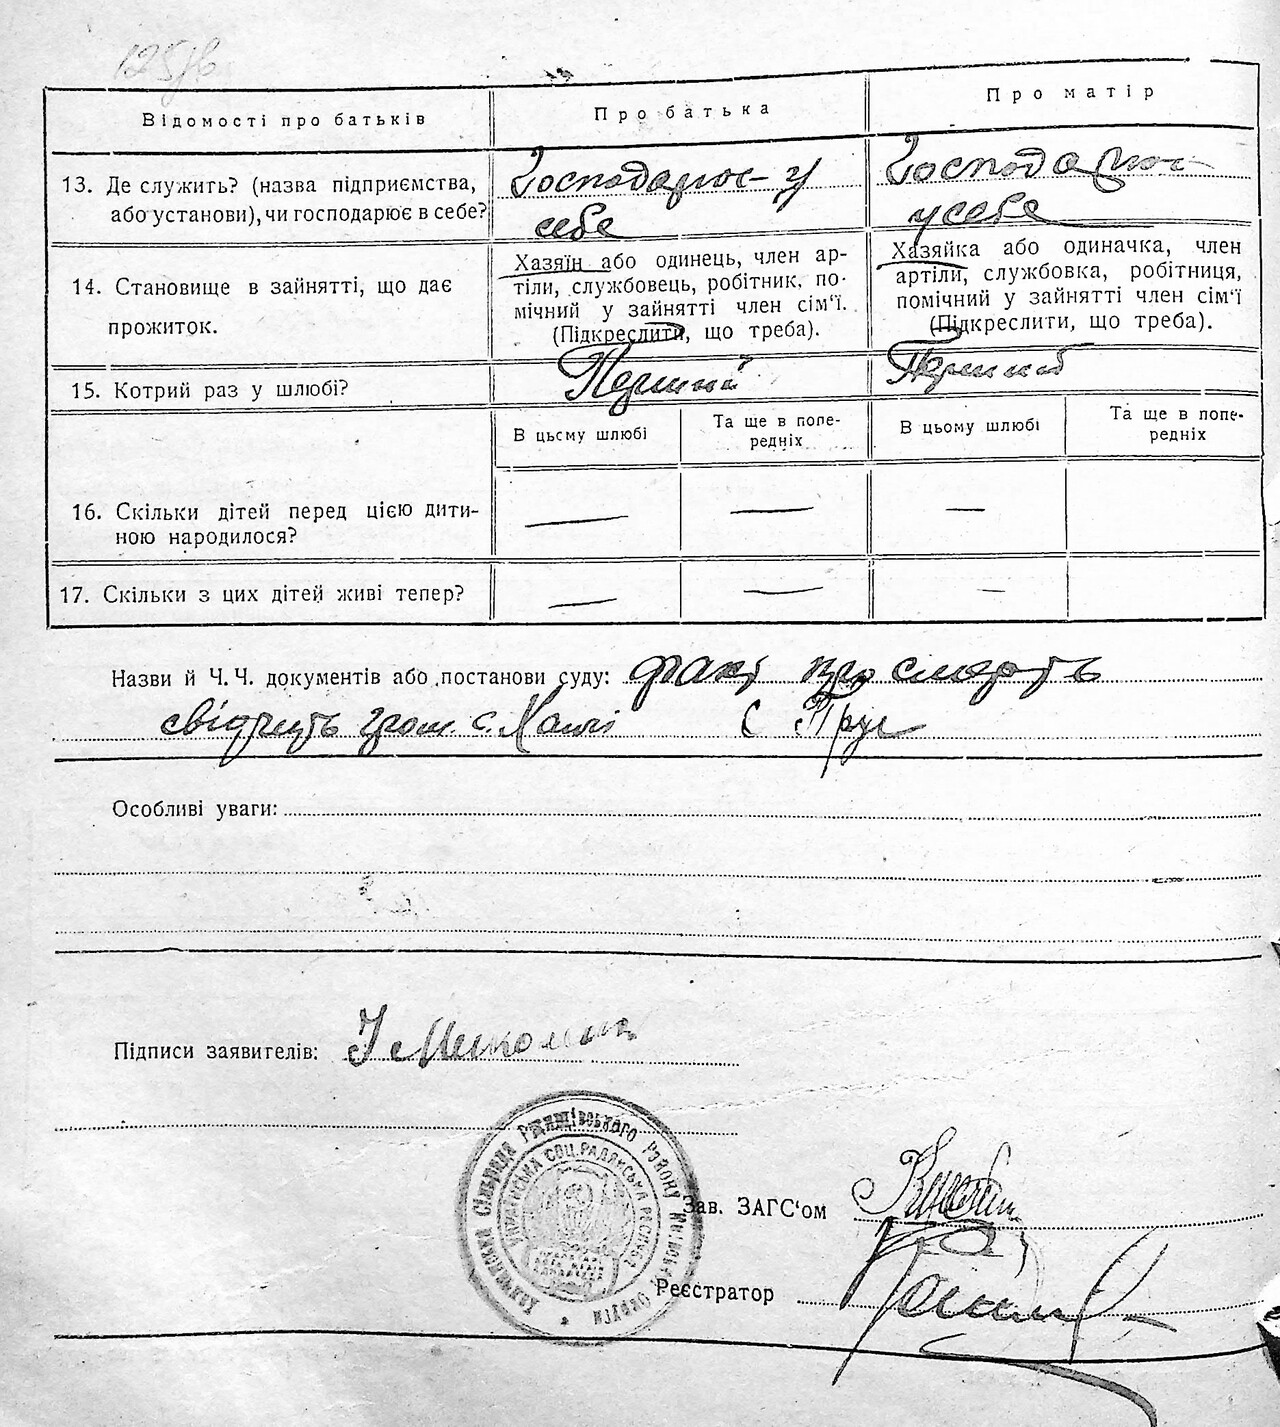 125/в
Відомості про батьків
Про батька
Про матір
13. Де служить? (назва підприємства,
або установи), чи господарює в себе?
Господарює у
себе
Господарює
у себе
14. Становище в зайнятті, що дає
прожиток.
Хазяїн або одинець, член ар-
тіли, службовець, робітник, по-
мічний у зайнятті член сім'ї.
(Підкреслити, що треба).
Хазяйка або одиначка, член
артіли, службовка, робітниця,
помічний у зайнятті член сім'ї
(Підкреслити, що треба).
15. Котрий раз у шлюбі?
Перший
Перший
В цьсму шлюбі
Та ще в попе-
редніх
В цьому шлюбі
Та ще в попе-
редніх
16. Скільки дітей перед цією дити-
ною народилося?
— — —
17. Скільки з цих дітей живі тепер?
— — —
Назви й Ч. Ч. документів або постанови суду: факт про смерть
свідчить гром. с.
Особливі уваги:
Підписи заявителів:
Сільрада Ржищівського району Київської округи
Українська Соц. Радянська Республ
Зав. ЗАГС'ом
Реєстратор